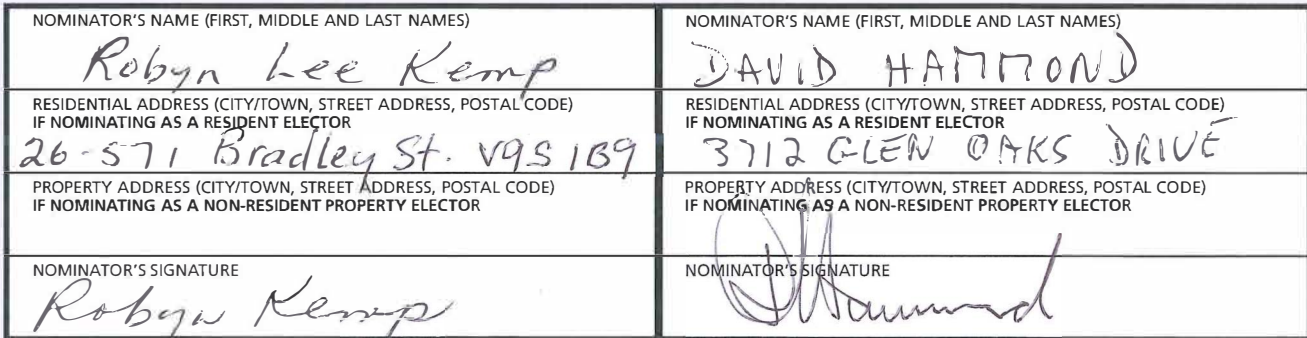 NOMINATOR'S NAME (FIRST, MIDDLE AND LAST NAMES)
Robyn Lee Kemp
RESIDENTIAL ADDRESS (CITY/TOWN, STREET ADDRESS, POSTAL CODE)
IF NOMINATING AS A RESIDENT ELECTOR
26-571 Bradley St. V9S 1B9
PROPERTY ADDRESS (CITY/TOWN, STREET ADDRESS, POSTAL CODE)
IF NOMINATING AS A NON-RESIDENT PROPERTY ELECTOR
NOMINATOR'S SIGNATURE
Robyn Kemp
NOMINATOR'S NAME (FIRST, MIDDLE AND LAST NAMES)
DAVID HAMMOND
RESIDENTIAL ADDRESS (CITY/TOWN, STREET ADDRESS, POSTAL CODE)
IF NOMINATING AS A RESIDENT ELECTOR
3712 GLEN OAKS DRIVE
PROPERTY ADDRESS (CITY/TOWN, STREET ADDRESS, POSTAL CODE)
IF NOMINATING AS A NON-RESIDENT PROPERTY ELECTOR
NOMINATOR'S SIGNATURE
DHammond